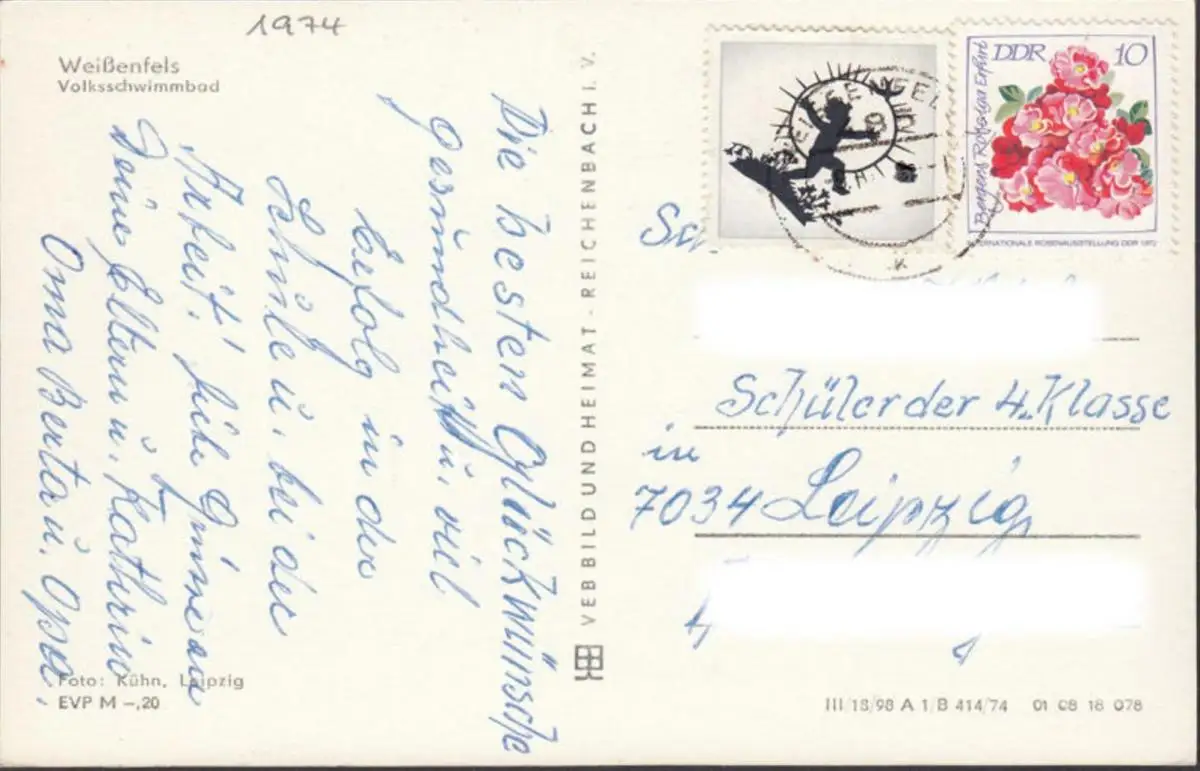 1974
Weißenfels
Volksschwimmbad
Die besten Glückwünsche
Gesundheit u. viel
Erfolg in der
Schule u. bei der
Arbeit! Liebe Grüsse an
Deine Eltern u. Kathrin
Oma Berta u. Opa.
Foto: Kühn, Leipzig
EVP M –,20
VEB BILD UND HEIMAT · REICHENBACH I. V.
DDR 10
Bergers Rose Erfurt
INTERNATIONALE ROSENAUSSTELLUNG DDR 1972
Schüler der 4. Klasse
in
7034 Leipzig
III/18/98 A 1/B 414/74 01 08 18 078